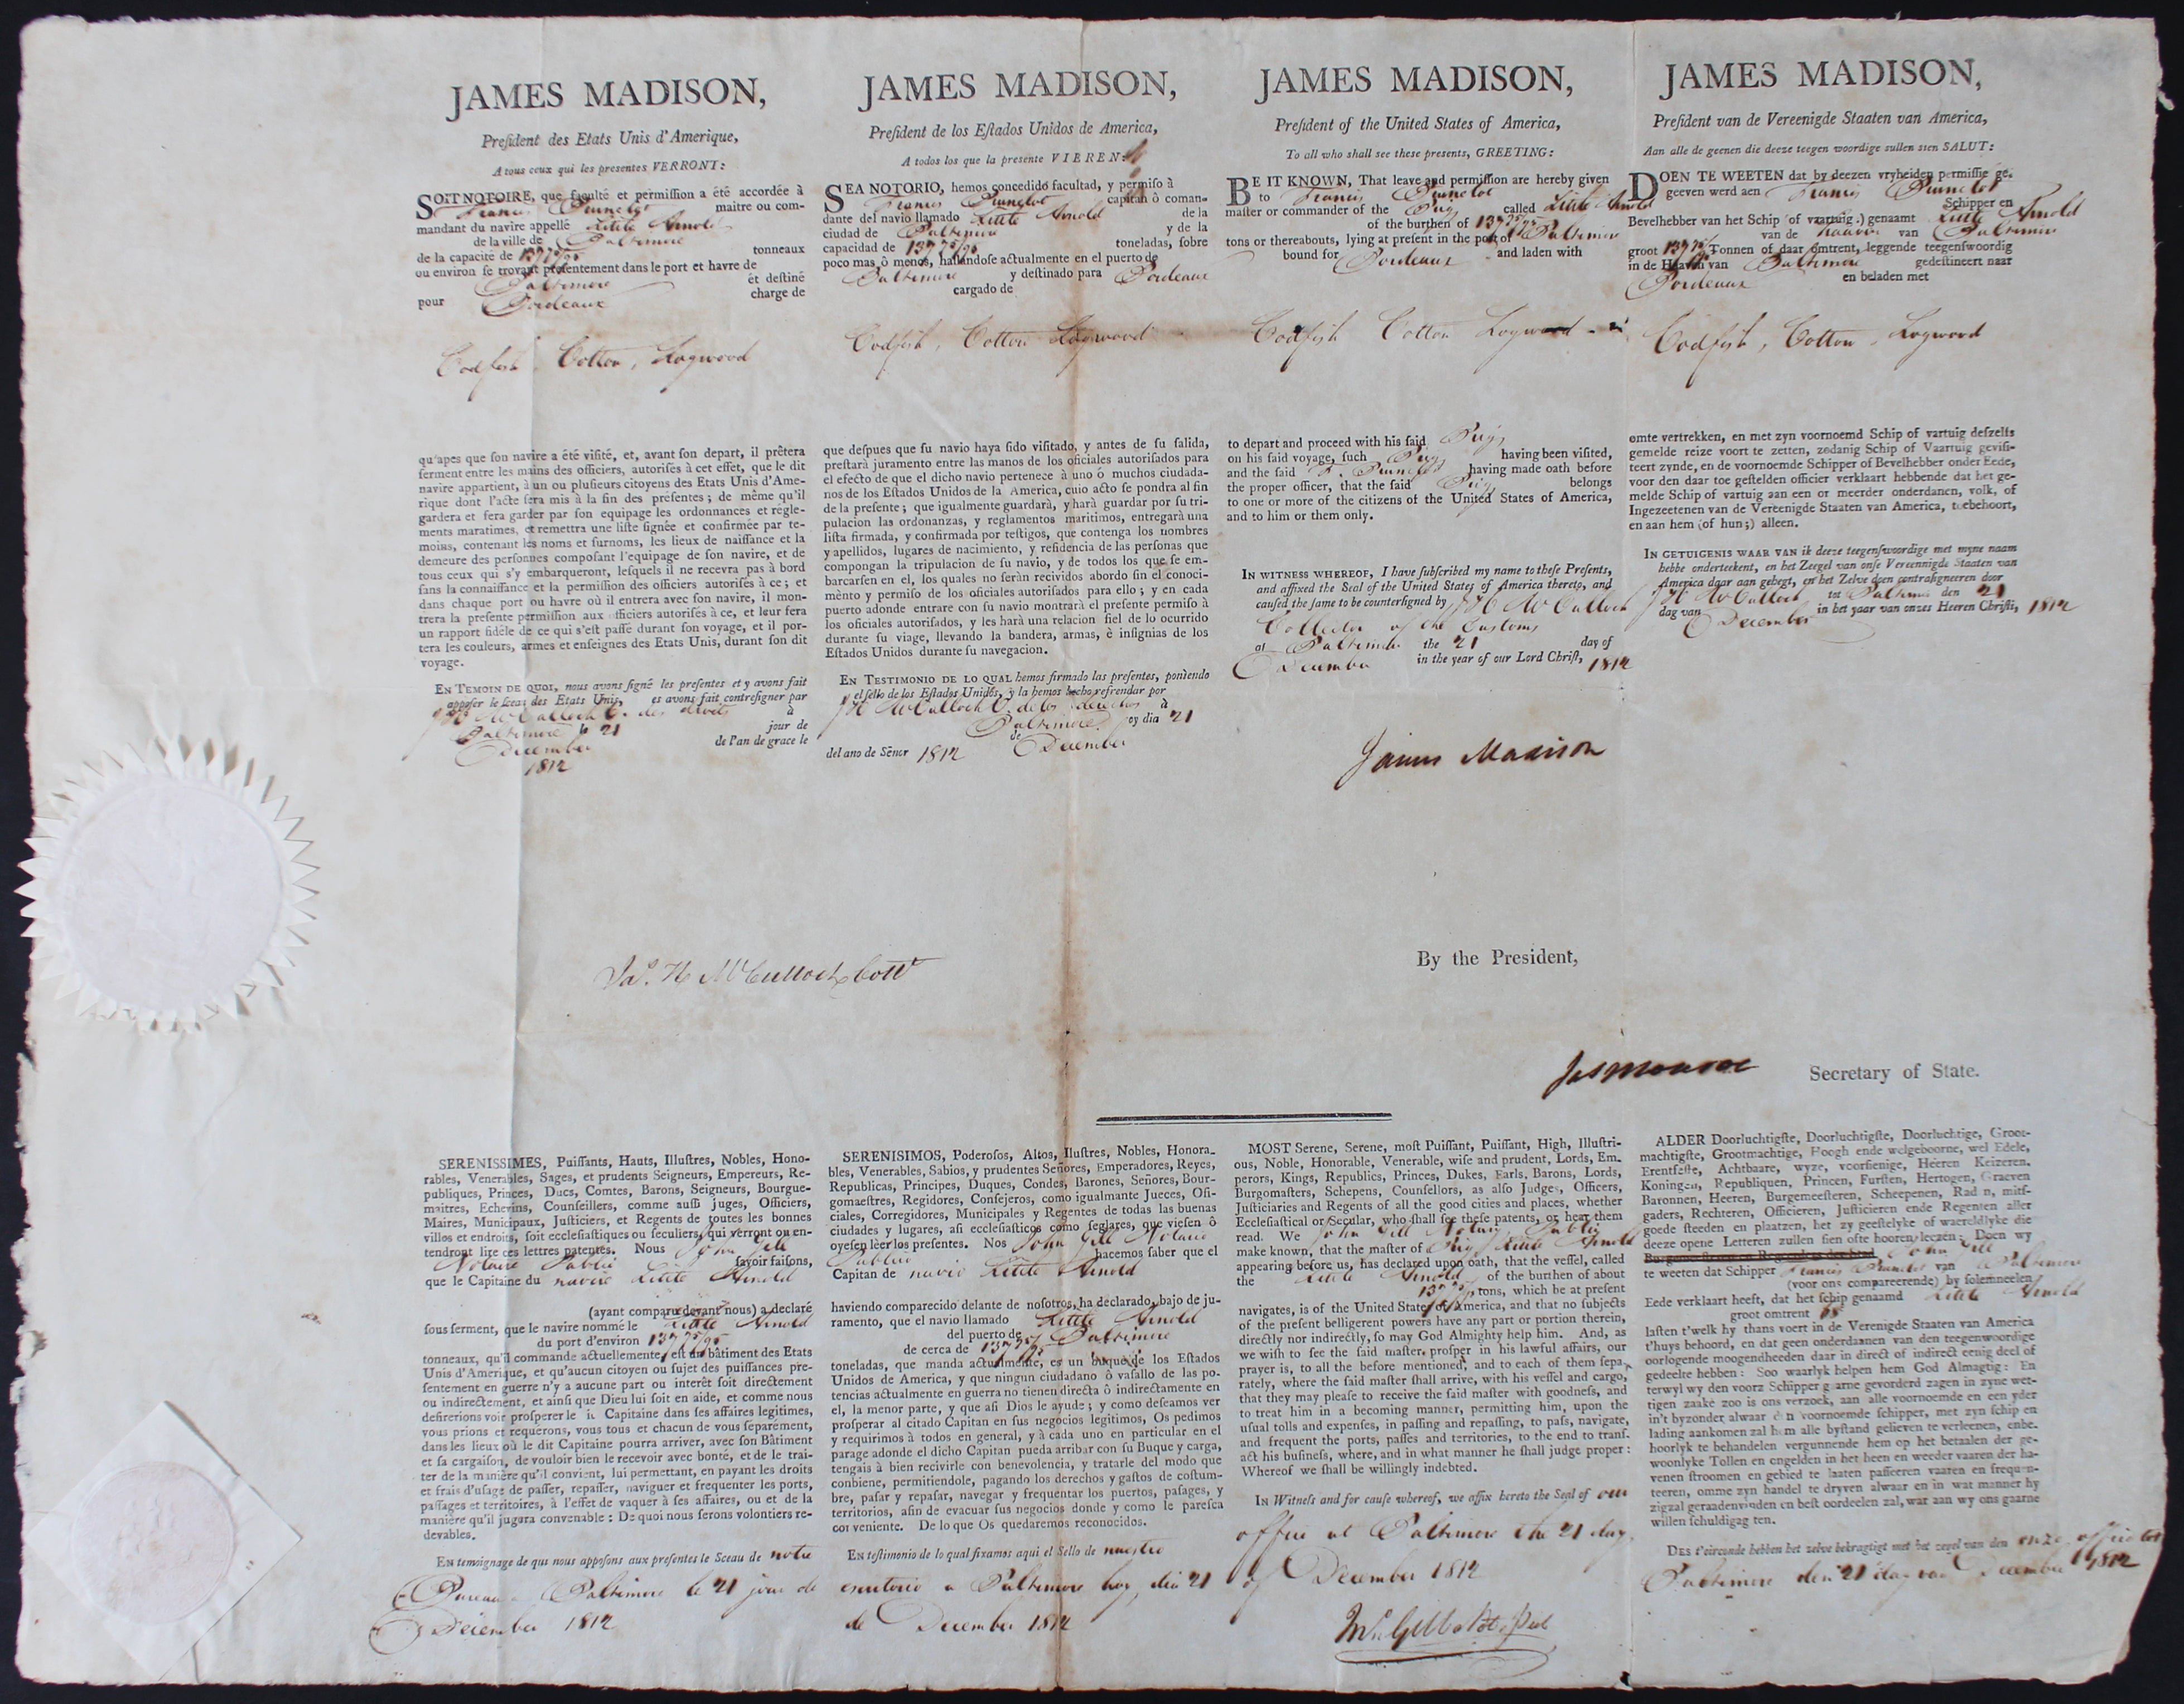 JAMES MADISON,
President des Etats Unis d'Amerique,
A tous ceux qui les presentes VERRONT:
SOIT NOTOIRE, que faculté et permission a été accordée à
Francis maitre ou com-
mandant du navire appellé Little Arnold
de la ville de Baltimore
de la capacité de 137 75/95 tonneaux
ou environ se trovant presentement dans le port et havre de
Baltimore et destiné
pour Bordeaux charge de
Codfish, Cotton, Logwood
qu'apes que son navire a été visité, et, avant son depart, il prêtera
serment entre les mains des officiers, autorisés à cet effet, que le dit
navire appartient, à un ou plusieurs citoyens des Etats Unis d'Ame-
rique dont l'acte sera mis à la fin des présentes; de même qu'il
gardera et fera garder par son equipage les ordonnances et régle-
ments maratimes, et remettra une liste signée et confirmée par te-
moins, contenant les noms et surnoms, les lieux de naissance et la
demeure des personnes composant l'equipage de son navire, et de
tous ceux qui s'y embarqueront, lesquels il ne recevra pas à bord
sans la connaissance et la permission des officiers autorisés à ce; et
dans chaque port ou havre où il entrera avec son navire, il mon-
trera la presente permission aux officiers autorisés à ce, et leur fera
un rapport fidéle de ce qui s'est passé durant son voyage, et il por-
tera les couleurs, armes et enseignes des Etats Unis, durant son dit
voyage.
EN TEMOIN DE QUOI, nous avons signé les presentes et y avons fait
apposer le sceau des Etats Unis, es avons fait contresigner par
J H McCulloch C. des droits à
Baltimore le 21 jour de
December de l'an de grace le
1812
JAMES MADISON,
President de los Estados Unidos de America,
A todos los que la presente VIEREN:
SEA NOTORIO, hemos concedido facultad, y permiso à
Francis capitan ô coman-
dante del navio llamado Little Arnold de la
ciudad de Baltimore y de la
capacidad de 137 75/95 toneladas, sobre
poco mas ô menos, hallandose actualmente en el puerto de
Baltimore y destinado para Bordeaux
cargado de
Codfish, Cotton Logwood
que despues que su navio haya sido visitado, y antes de su salida,
prestarà juramento entre las manos de los oficiales autorisados para
el efecto de que el dicho navio pertenece à uno ó muchos ciudada-
nos de los Estados Unidos de la America, cuio acto se pondra al fin
de la presente; que igualmente guardarà, y harà guardar por su tri-
pulacion las ordonanzas, y reglamentos maritimos, entregarà una
lista firmada, y confirmada por testigos, que contenga los nombres
y apellidos, lugares de nacimiento, y residencia de las personas que
compongan la tripulacion de su navio, y de todos los que se em-
barcarsen en el, los quales no seràn recividos abordo sin el conoci-
mènto y permiso de los oficiales autorisados para ello; y en cada
puerto adonde entrare con su navio montrarà el presente permiso à
los oficiales autorisados, y les harà una relacion fiel de lo ocurrido
durante su viage, llevando la bandera, armas, è insignias de los
Estados Unidos durante su navegacion.
EN TESTIMONIO DE LO QUAL hemos firmado las presentes, ponièndo
el sello de los Estados Unidos, y la hemos hecho refrendar por
J H McCulloch C. de los derechos à
Baltimore oy dia 21
de December
del ano de Sènor 1812
JAMES MADISON,
President of the United States of America,
To all who shall see these presents, GREETING:
BE IT KNOWN, That leave and permission are hereby given
to Francis
master or commander of the Brig called Little Arnold
of the burthen of 137 75/95
tons or thereabouts, lying at present in the port of Baltimore
bound for Bordeaux and laden with
Codfish Cotton Logwood
to depart and proceed with his said Brig
on his said voyage, such Brig having been visited,
and the said F. having made oath before
the proper officer, that the said Brig belongs
to one or more of the citizens of the United States of America,
and to him or them only.
IN WITNESS WHEREOF, I have subscribed my name to these Presents,
and affixed the Seal of the United States of America thereto, and
caused the same to be countersigned by J H McCulloch
Collector of the Customs
at Baltimore the 21 day of
December in the year of our Lord Christ, 1812
James Madison
JAMES MADISON,
President van de Vereenigde Staaten van America,
Aan alle de geenen die deeze teegen woordige sullen sien SALUT:
DOEN TE WEETEN dat by deezen vryheiden permissie ge-
geeven werd aen Francis
Schipper en
Bevelhebber van het Schip (of vaartuig.) genaamt Little Arnold
van de haaven van Baltimore
groot 137 75/95 Tonnen of daar omtrent, leggende teegenswoordig
in de Haaven van Baltimore gedestineert naar
Bordeaux en beladen met
Codfish, Cotton, Logwood
omte vertrekken, en met zyn voornoemd Schip of vartuig deszelfs
gemelde reize voort te zetten, zodanig Schip of Vaartuig gevisi-
teert zynde, en de voornoemde Schipper of Bevelhebber onder Eede,
voor den daar toe gestelden officier verklaart hebbende dat het ge-
melde Schip of vartuig aan een or meerder onderdanen, volk, of
Ingezeetenen van de Vereenigde Staaten van America, toebehoort,
en aan hem (of hun;) alleen.
IN GETUIGENIS WAAR VAN ik deeze teegenswoordige met myne naam
hebbe onderteekent, en het Zeegel van onse Vereennigde Staaten van
America daar aan gehegt, en het Zelve doen contrasigneeren door
J H McCulloch tot Baltimore den 21
dag van December in het jaar van onzes Heeren Christi, 1812
Jas. H McCulloch Collr
By the President,
Jas Monroe Secretary of State.
SERENISSIMES, Puissants, Hauts, Illustres, Nobles, Hono-
rables, Venerables, Sages, et prudents Seigneurs, Empereurs, Re-
publiques, Princes, Ducs, Comtes, Barons, Seigneurs, Bourgue-
maitres, Echevins, Counseillers, comme aussi juges, Officiers,
Maires, Municipaux, Justiciers, et Regents de toutes les bonnes
villos et endroits, soit ecclesiastiques ou seculiers, qui verront ou en-
tendront lire ces lettres patentes. Nous John Gill
Notaire Public savoir faisons,
que le Capitaine du navire Little Arnold
(ayant comparu devant nous) a declaré
sous serment, que le navire nommé le Little Arnold
du port d'environ 137 75/95
tonneaux, qu'il commande actuellement, est un bâtiment des Etats
Unis d'Amerique, et qu'aucun citoyen ou sujet des puissances pre-
sentement en guerre n'y a aucune part ou interêt soit directement
ou indirectement, et ainsi que Dieu lui soit en aide, et comme nous
desirerions voir prosperer le Capitaine dans ses affaires legitimes,
vous prions et requerons, vous tous et chacun de vous séparement,
dans les lieux où le dit Capitaine pourra arriver, avec son Bâtiment
et sa cargaison, de vouloir bien le recevoir avec bonté, et de le trai-
ter de la manière qu'il convient, lui permettant, en payant les droits
et frais d'usage de passer, repasser, naviguer et frequenter les ports,
passages et territoires, à l'effet de vaquer à ses affaires, ou et de la
manière qu'il jugura convenable: De quoi nous serons volontiers re-
devables.
EN temoignage de qus nous apposons aux presentes le Sceau de notre
Bureau a Baltimore le 21 jour de
December 1812
SERENISIMOS, Poderosos, Altos, Ilustres, Nobles, Honora-
bles, Venerables, Sabios, y prudentes Señores, Emperadores, Reyes,
Republicas, Principes, Duques, Condes, Barones, Señores, Bour-
gomaestres, Regidores, Consejeros, como igualmante Jueces, Ofi-
ciales, Corregidores, Municipales y Regentes de todas las buenas
ciudades y lugares, asi ecclesiasticos como seglares, que viesen ô
oyesen lèer los presentes. Nos John Gill Notario
Publico hacemos saber que el
Capitan de navio Little Arnold
haviendo comparecido delante de nosotros, ha declarado, bajo de ju-
ramento, que el navio llamado Little Arnold
del puerto de Baltimore
de cerca de 137 75/95
toneladas, que manda actualmente, es un buque de los Estados
Unidos de America, y que ningun ciudadano ô vasallo de las po-
tencias actualmente en guerra no tienen directa ô indirectamente en
el, la menor parte, y que asi Dios le ayude; y como deseamos ver
prosperar al citado Capitan en sus negocios legitimos, Os pedimos
y requirimos à todos en general, y à cada uno en particular en el
parage adonde el dicho Capitan pueda arribar con su Buque y carga,
tengais à bien recivirle con benevolencia, y tratarle del modo que
conbiene, permitiendole, pagando los derechos y gastos de costum-
bre, pasar y repasar, navegar y frequentar los puertos, pasages, y
territorios, afin de evacuar sus negocios donde y como le paresca
conveniente. De lo que Os quedaremos reconocidos.
EN testimonio de lo qual fixamos aqui el Sello de nuestro
escritorio a Baltimore hoy dia 21
de December 1812
MOST Serene, Serene, most Puissant, Puissant, High, Illustri-
ous, Noble, Honorable, Venerable, wise and prudent, Lords, Em-
perors, Kings, Republics, Princes, Dukes, Earls, Barons, Lords,
Burgomasters, Schepens, Counsellors, as also Judges, Officers,
Justiciaries and Regents of all the good cities and places, whether
Ecclesiastical or Secular, who shall see these patents, or hear them
read. We John Gill Notary Public
make known, that the master of Brig Little Arnold
appearing before us, has declared upon oath, that the vessel, called
the Little Arnold of the burthen of about
137 75/95 tons, which he at present
navigates, is of the United States of America, and that no subjects
of the present belligerent powers have any part or portion therein,
directly nor indirectly, so may God Almighty help him. And, as
we wish to see the said master prosper in his lawful affairs, our
prayer is, to all the before mentioned, and to each of them sepa-
rately, where the said master shall arrive, with his vessel and cargo,
that they may please to receive the said master with goodness, and
to treat him in a becoming manner, permitting him, upon the
usual tolls and expenses, in passing and repassing, to pass, navigate,
and frequent the ports, passes and territories, to the end to trans-
act his business, where, and in what manner he shall judge proper:
Whereof we shall be willingly indebted.
IN Witness and for cause whereof, we affix hereto the Seal of our
office at Baltimore the 21 day
of December 1812
Jn. Gill Not. Pub
ALDER Doorluchtigste, Doorluchtigste, Doorluchtige, Groot-
machtigste, Grootmachtige, Hoogh ende welgeboorne, wel Edele,
Erentfeste, Achtbaare, wyze, voorsienige, Heeren Keizeren,
Koningen, Republiquen, Princen, Fursten, Hertogen, Graeven
Baronnen, Heeren, Burgemeesteren, Scheepenen, Raden, mits-
gaders, Rechteren, Officieren, Justicieren ende Regenten aller
goede steeden en plaatzen, het zy geestelyke of waereldlyke die
deeze opene Letteren zullen sien ofte hooren leezen: Doen wy
John Gill
te weeten dat Schipper Francis van Baltimore
(voor ons compareerende) by solemneelen
Eede verklaart heeft, dat het schip genaamd Little Arnold
groot omtrent
lasten t'welk hy thans voert in de Verenigde Staaten van America
t'huys behoord, en dat geen onderdaanen van den teegenwoordige
oorlogende moogendheeden daar in direct of indirect eenig deel of
gedeelte hebben: Soo waarlyk helpen hem God Almagtig: En
terwyl wy den voorz Schipper gaarne gevorderd zagen in zyne wet-
tigen zaake zoo is ons verzoek, aan alle voornoemde en een yder
in't byzonder, alwaar den voornoemde schipper, met zyn schip en
lading aankomen zal hem alle bystand gelieven te verleenen, enbe-
hoorlyk te behandelen vergunnende hem op het betaalen der ge-
woonlyke Tollen en ongelden in het heen en weeder vaaren der ha-
venen stroomen en gebied te laaten passeeren vaaren en frequen-
teeren, omme zyn handel te dryven alwaar en in wat manner hy
zigzal geraadenvinden en best oordeelen zal, war aan wy ons gaarne
willen schuldigag ten.
DES t'oirconde hebben het zelve bekragtigt met het zegel van den onze office tot
Baltimore den 21 dag van December 1812